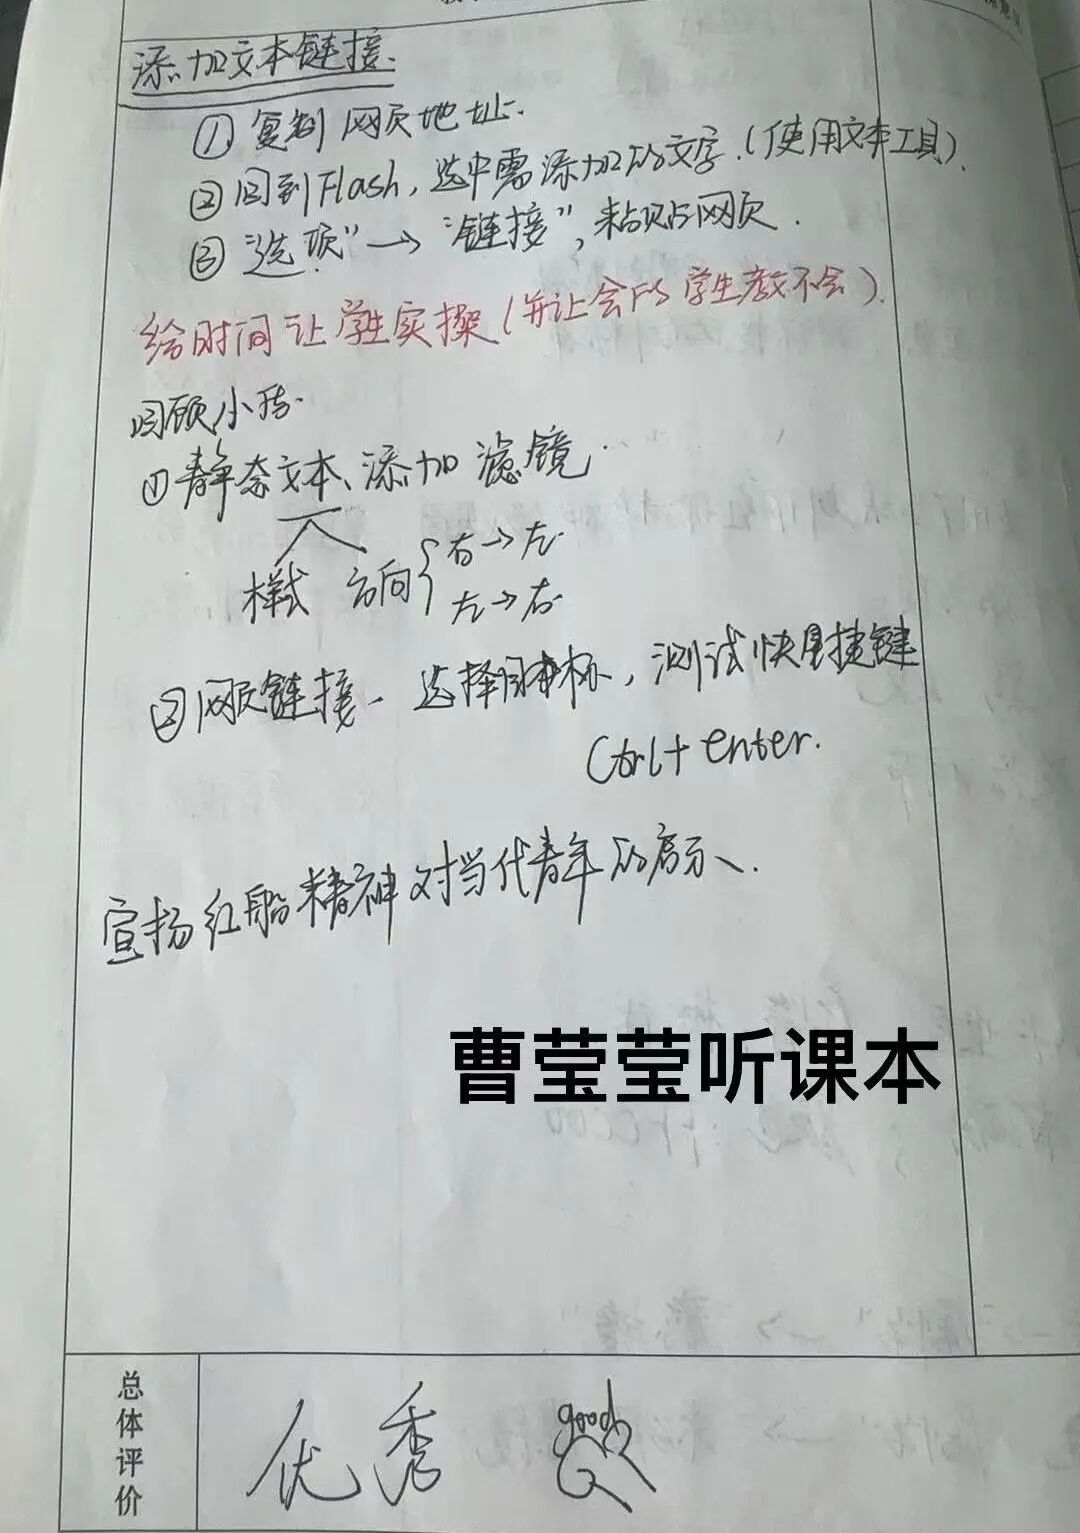 添加文本链接.
① 复制网页地址.
② 回到Flash，选中需添加的文字.(使用文本工具).
③ "选项"→"链接"，粘贴网页.
给时间让学生实操(并让会的学生教不会).
回顾小结.
① 静态文本、添加滤镜..
样式 方向{右→左.
左→右.
② 网页链接、选择目标，测试快捷键
Ctrl+enter.
宣扬红船精神对当代青年的启示、.
曹莹莹听课本
总体评价
优秀 good